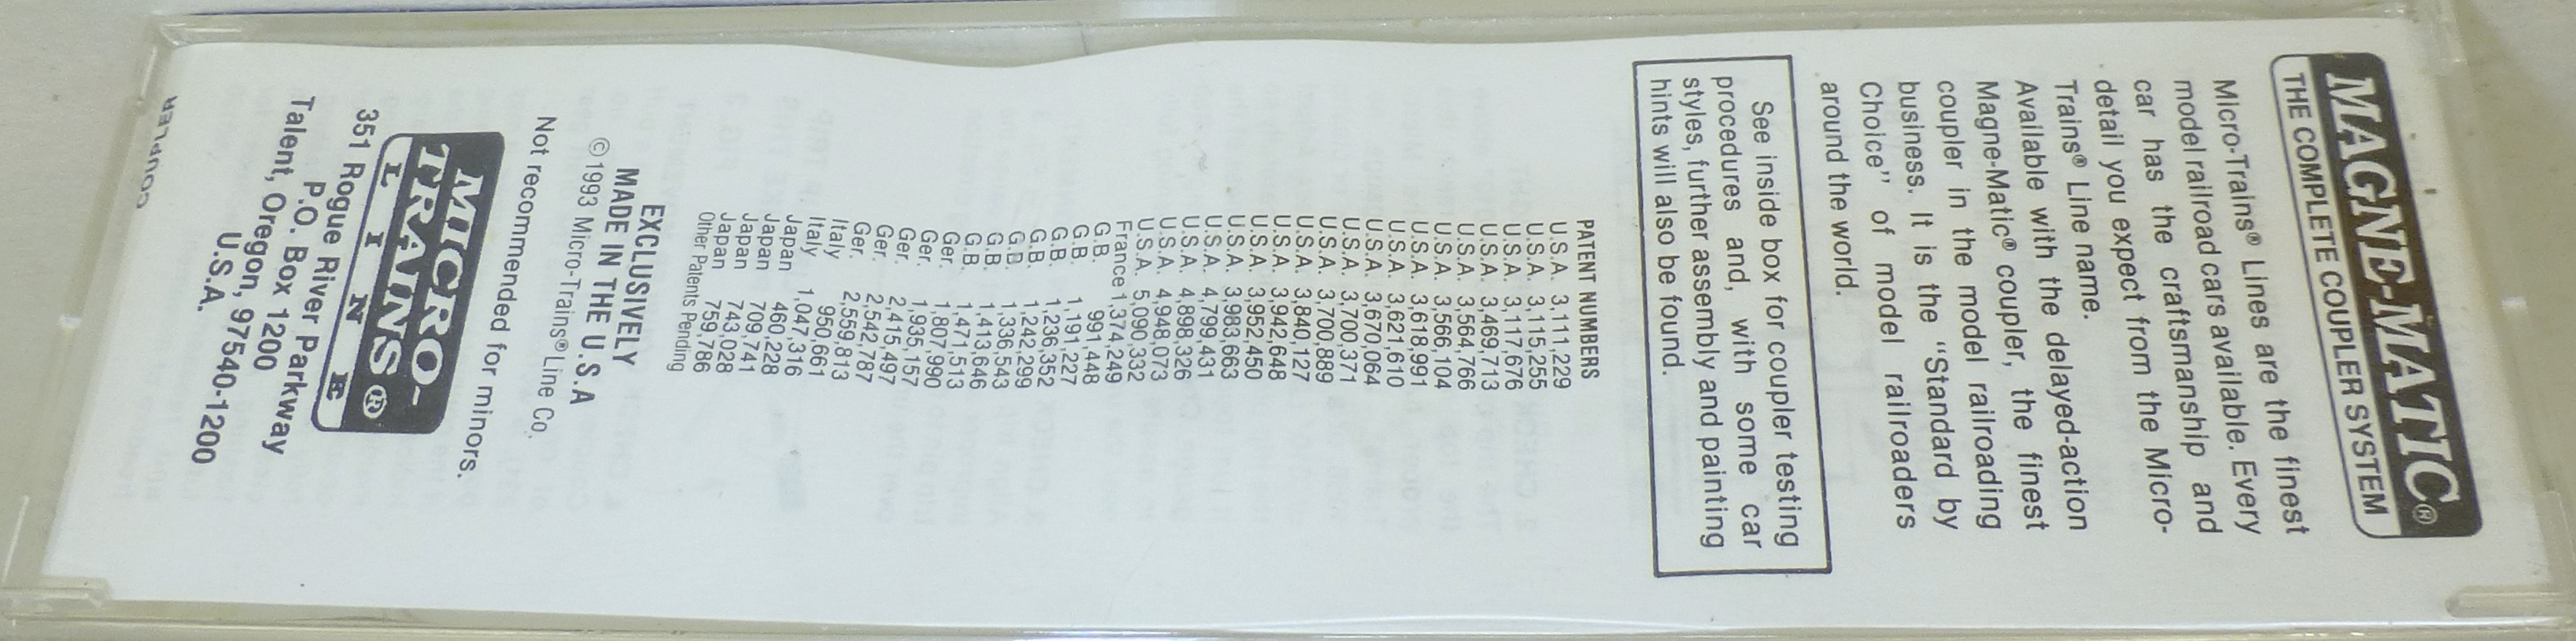 MAGNE-MATIC®
THE COMPLETE COUPLER SYSTEM
Micro-Trains® Lines are the finest
model railroad cars available. Every
car has the craftsmanship and
detail you expect from the Micro-
Trains® Line name.
Available with the delayed-action
Magne-Matic® coupler, the finest
coupler in the model railroading
business. It is the "Standard by
Choice" of model railroaders
around the world.
See inside box for coupler testing
procedures and, with some car
styles, further assembly and painting
hints will also be found.
PATENT NUMBERS
U.S.A. 3,111,229
U.S.A. 3,115,255
U.S.A. 3,117,676
U.S.A. 3,469,713
U.S.A. 3,564,766
U.S.A. 3,566,104
U.S.A. 3,618,991
U.S.A. 3,621,610
U.S.A. 3,670,064
U.S.A. 3,700,371
U.S.A. 3,700,889
U.S.A. 3,840,127
U.S.A. 3,942,648
U.S.A. 3,952,450
U.S.A. 3,983,663
U.S.A. 4,799,431
U.S.A. 4,898,326
U.S.A. 4,948,073
U.S.A. 5,090,332
France 1,374,249
G.B. 991,448
G.B. 1,191,227
G.B. 1,236,352
G.B. 1,242,299
G.B. 1,336,543
G.B. 1,413,646
G.B. 1,471,513
Ger. 1,807,990
Ger. 1,935,157
Ger. 2,415,497
Ger. 2,542,787
Ger. 2,559,813
Italy 950,661
Italy 1,047,316
Japan 460,228
Japan 709,741
Japan 743,028
Japan 759,786
Other Patents Pending
EXCLUSIVELY
MADE IN THE U.S.A
©1993 Micro-Trains® Line Co.
Not recommended for minors.
MICRO-
TRAINS®
LINE
351 Rogue River Parkway
P.O. Box 1200
Talent, Oregon, 97540-1200
U.S.A.
COUPLER